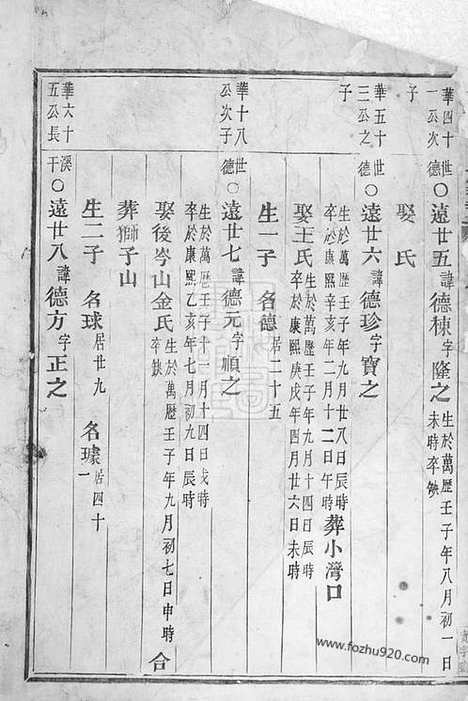 華四十世
一公次德
子
○遠世五諱德棟字隆之生於萬歷壬子年八月初一日
未時卒缺
娶 氏
華五十世
三公之德
子
○遠世六諱德珍字寶之
生於萬歷壬子年九月廿八日辰時
卒於康熙 子年二月十二日午時
葬小灣口
娶王氏生於萬歷壬子年九月十四日辰時
卒於康熙庚戌年四月廿六日未時
生一子 名德居二十五
華十八世
公次子德
○遠世七諱德元字順之
生於萬歷壬子十一月十四日戌時
卒於康熙乙亥年七月初九日辰時
娶後岑山金氏生於萬歷壬子年九月初七日申時
卒缺
合
葬獅子山
生二子 名球居世九 名璩居四十
一
華六十溪
五公長干
○遠世八諱德方字正之
www.fozhu920.com